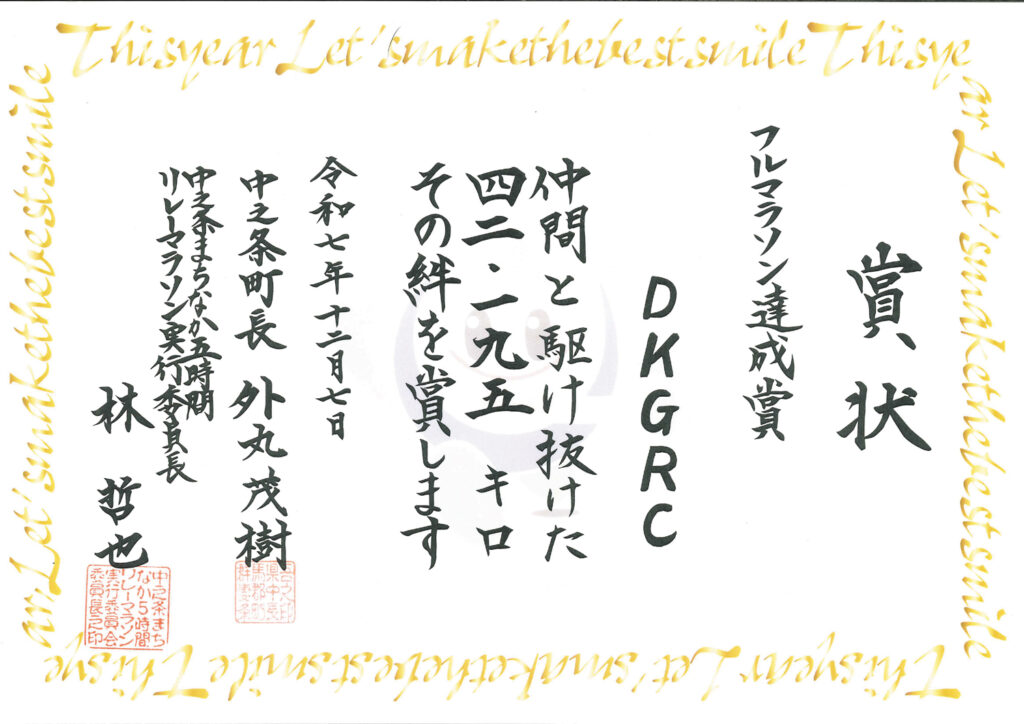 This year Let's make the best smile This ye
ar Let's make the best smile
This year Let's make the best smile This ye
ar Let's make the best smile
賞状
フルマラソン達成賞
DKGRC
仲間と駆け抜けた
四二・一九五キロ
その絆を賞します
令和七年十二月七日
中之条町長 外丸茂樹
中之条まちなか五時間
リレーマラソン実行委員長
林 哲也
中之条まち
なか5時間
リレーマラソン
実行委員会
委員長之印